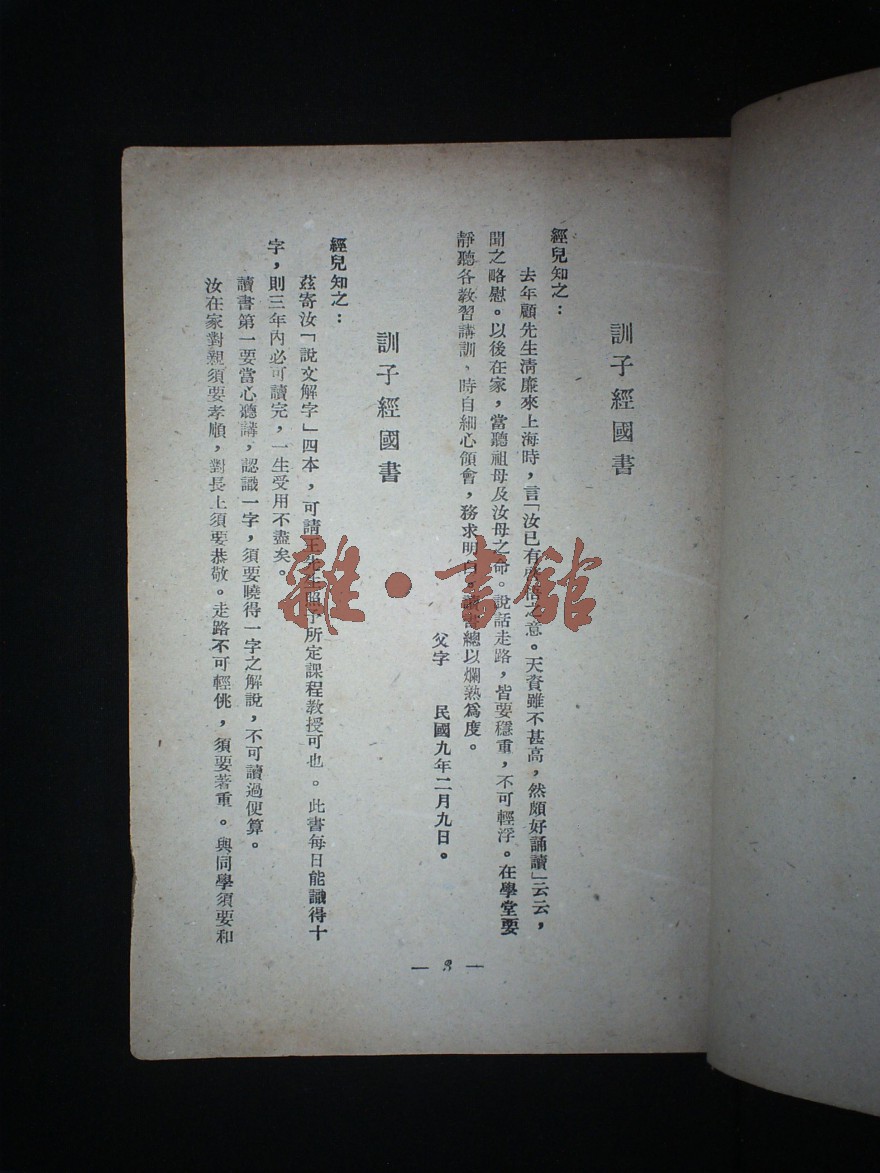 訓子經國書
經兒知之：
去年顧先生清廉來上海時，言「汝已有啓悟之意。天資雖不甚高，然頗好誦讀」云云，
聞之略慰。以後在家，當聽祖母及汝母之命。說話走路，皆要穩重，不可輕浮。在學堂要
靜聽各教習講訓，時自細心領會，務求明白。讀書總以爛熟爲度。
父字　民國九年二月九日。
訓子經國書
經兒知之：
茲寄汝「說文解字」四本，可請王先生照予所定課程教授可也。此書每日能識得十
字，則三年內必可讀完，一生受用不盡矣。
讀書第一要當心聽講，認識一字，須要曉得一字之解說，不可讀過便算。
汝在家對親須要孝順，對長上須要恭敬。走路不可輕佻，須要著重。與同學須要和
— 3 —
雜·書館